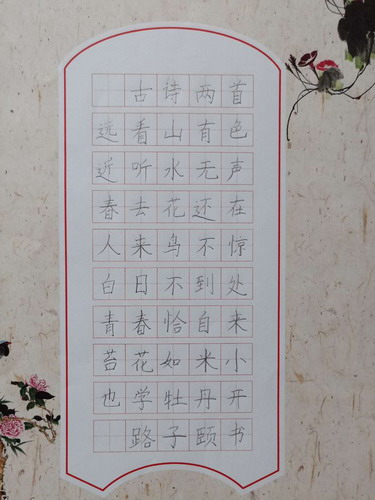 古诗两首
远看山有色
近听水无声
春去花还在
人来鸟不惊
白日不到处
青春恰自来
苔花如米小
也学牡丹开
路子颐书